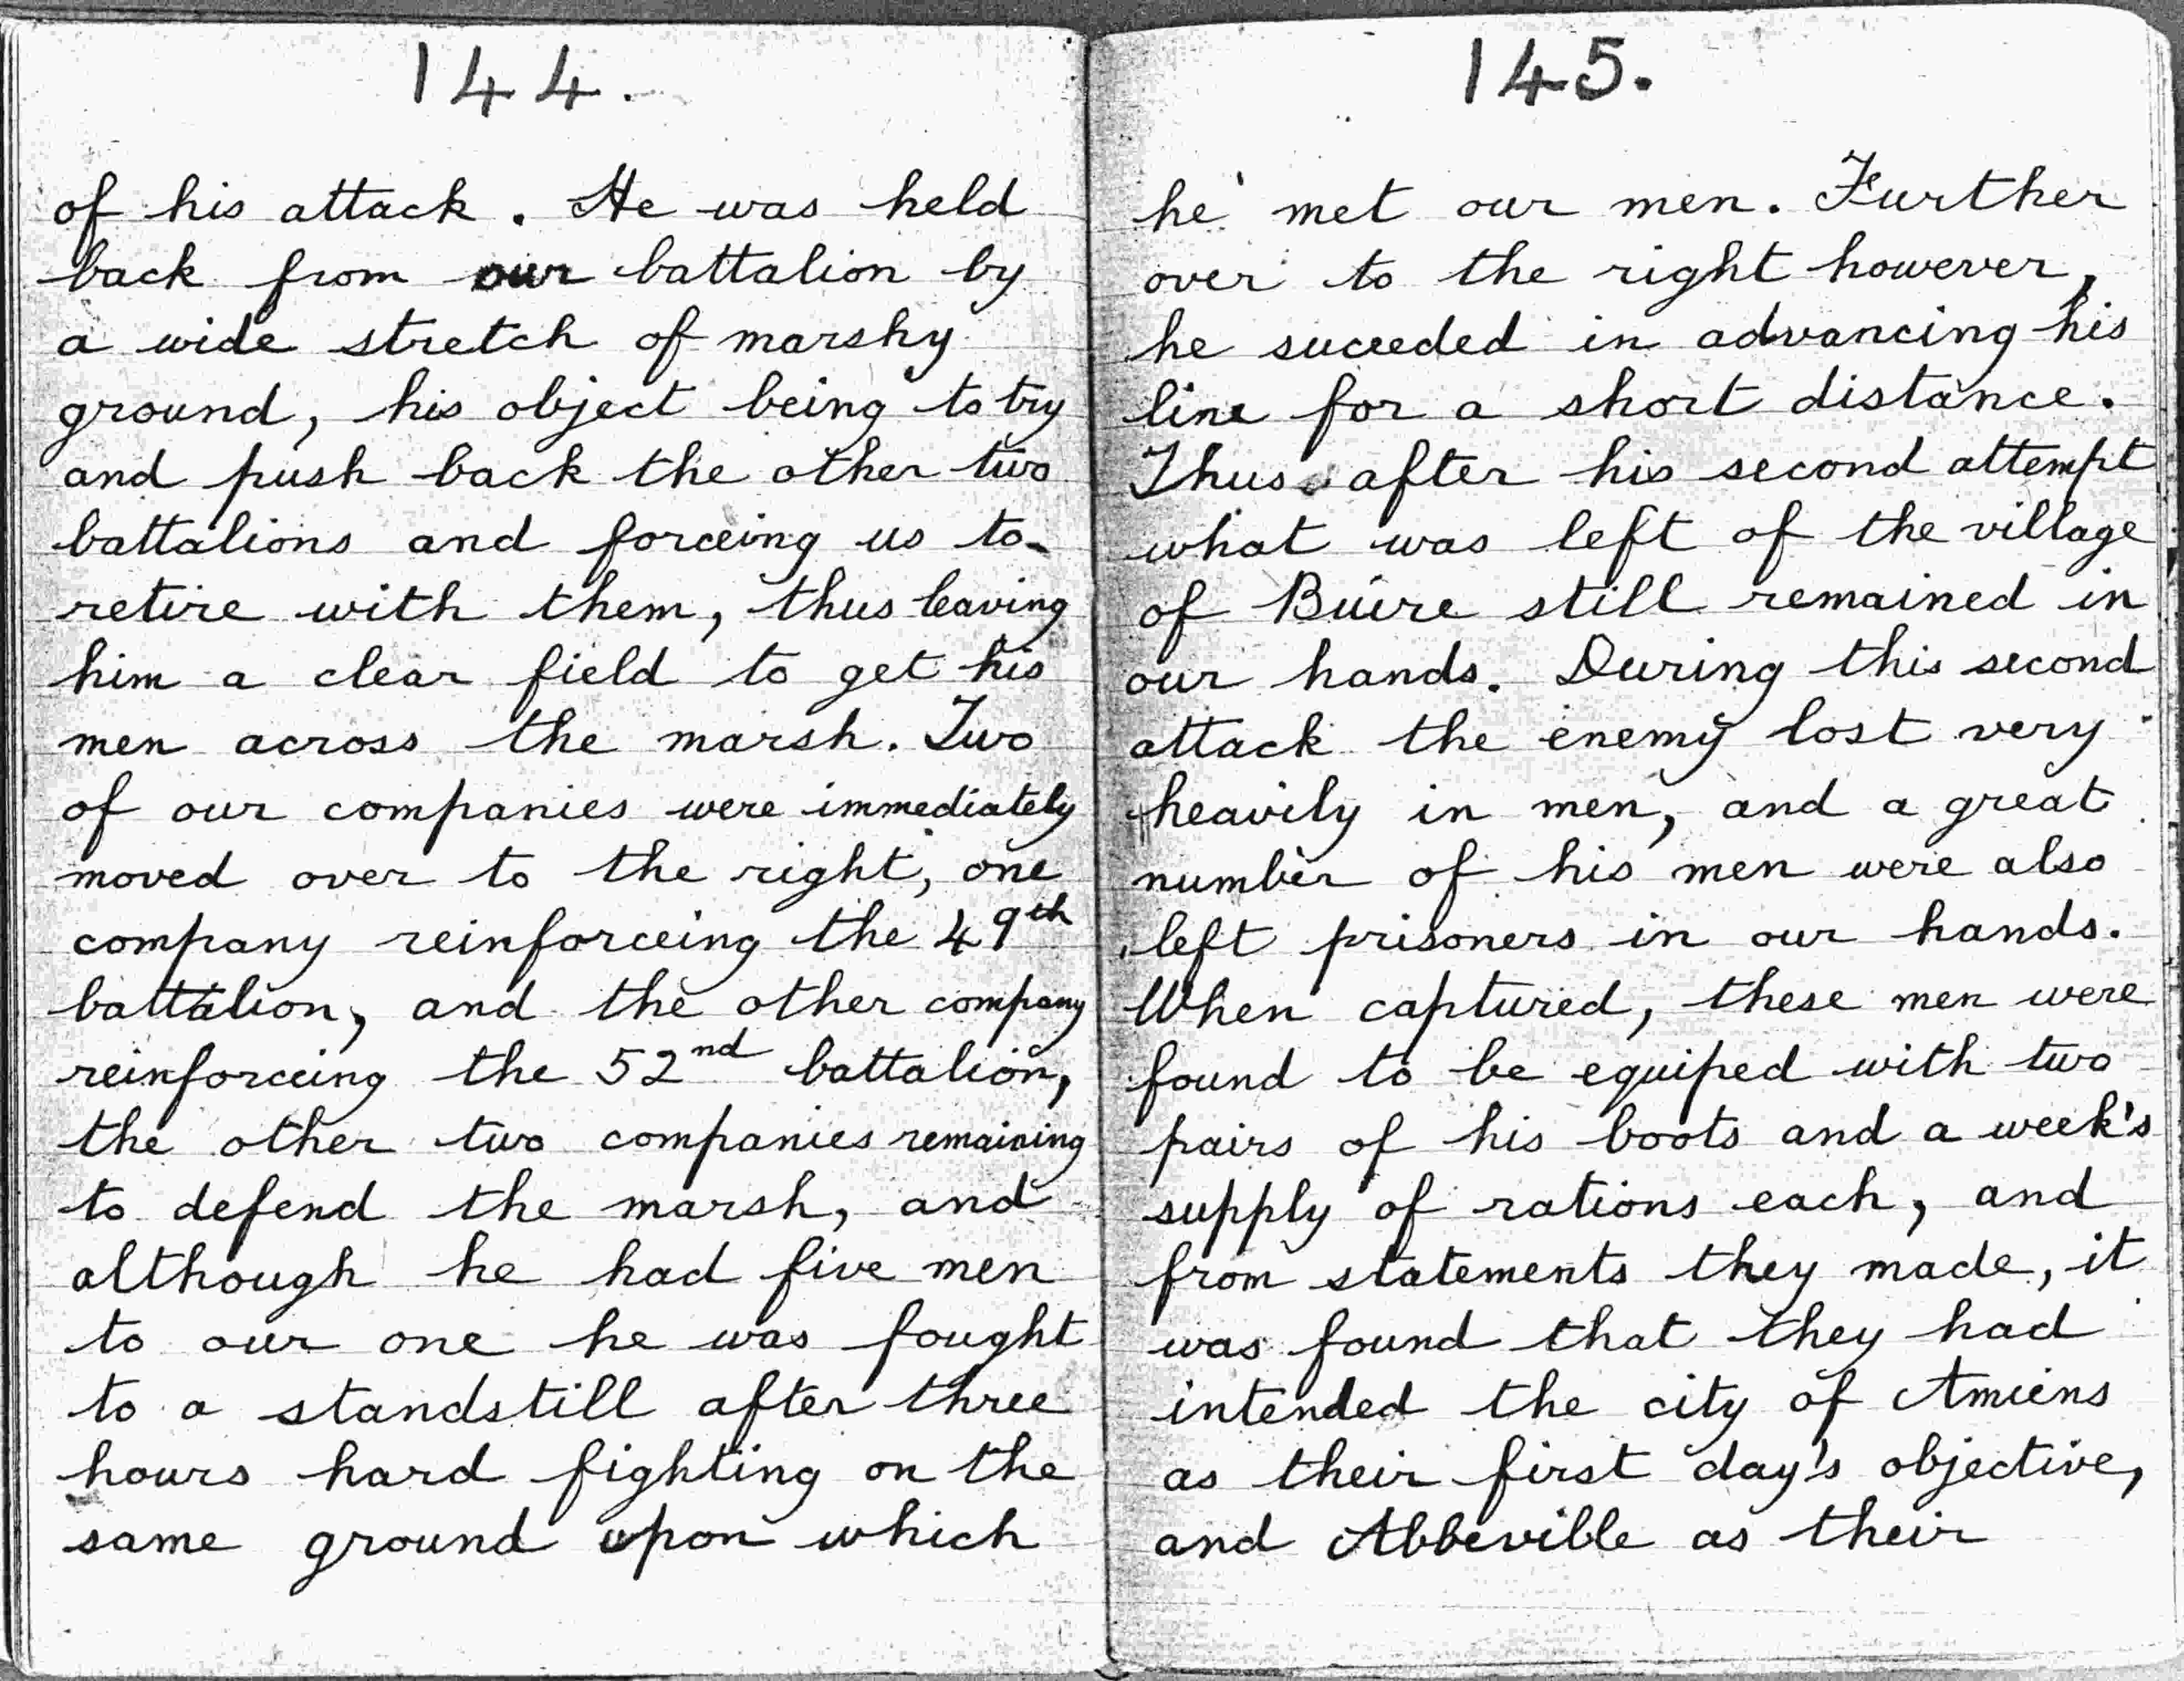 144.
of his attack. He was held
back from our battalion by
a wide stretch of marshy
ground, his object being to try
and push back the other two
battalions and forceing us to
retire with them, thus leaving
him a clear field to get his
men across the marsh. Two
of our companies were immediately
moved over to the right, one
company reinforceing the 49th
battalion, and the other company
reinforceing the 52nd battalion,
the other two companies remaining
to defend the marsh, and
although he had five men
to our one he was fought
to a standstill after three
hours hard fighting on the
same ground upon which
145.
he met our men. Further
over to the right however,
he suceeded in advancing his
line for a short distance.
Thus after his second attempt
what was left of the village
of Buire still remained in
our hands. During this second
attack the enemy lost very
heavily in men, and a great
number of his men were also
left prisoners in our hands.
When captured, these men were
found to be equiped with two
pairs of his boots and a week's
supply of rations each, and
from statements they made, it
was found that they had
intended the city of Amiens
as their first day's objective,
and Abbeville as their